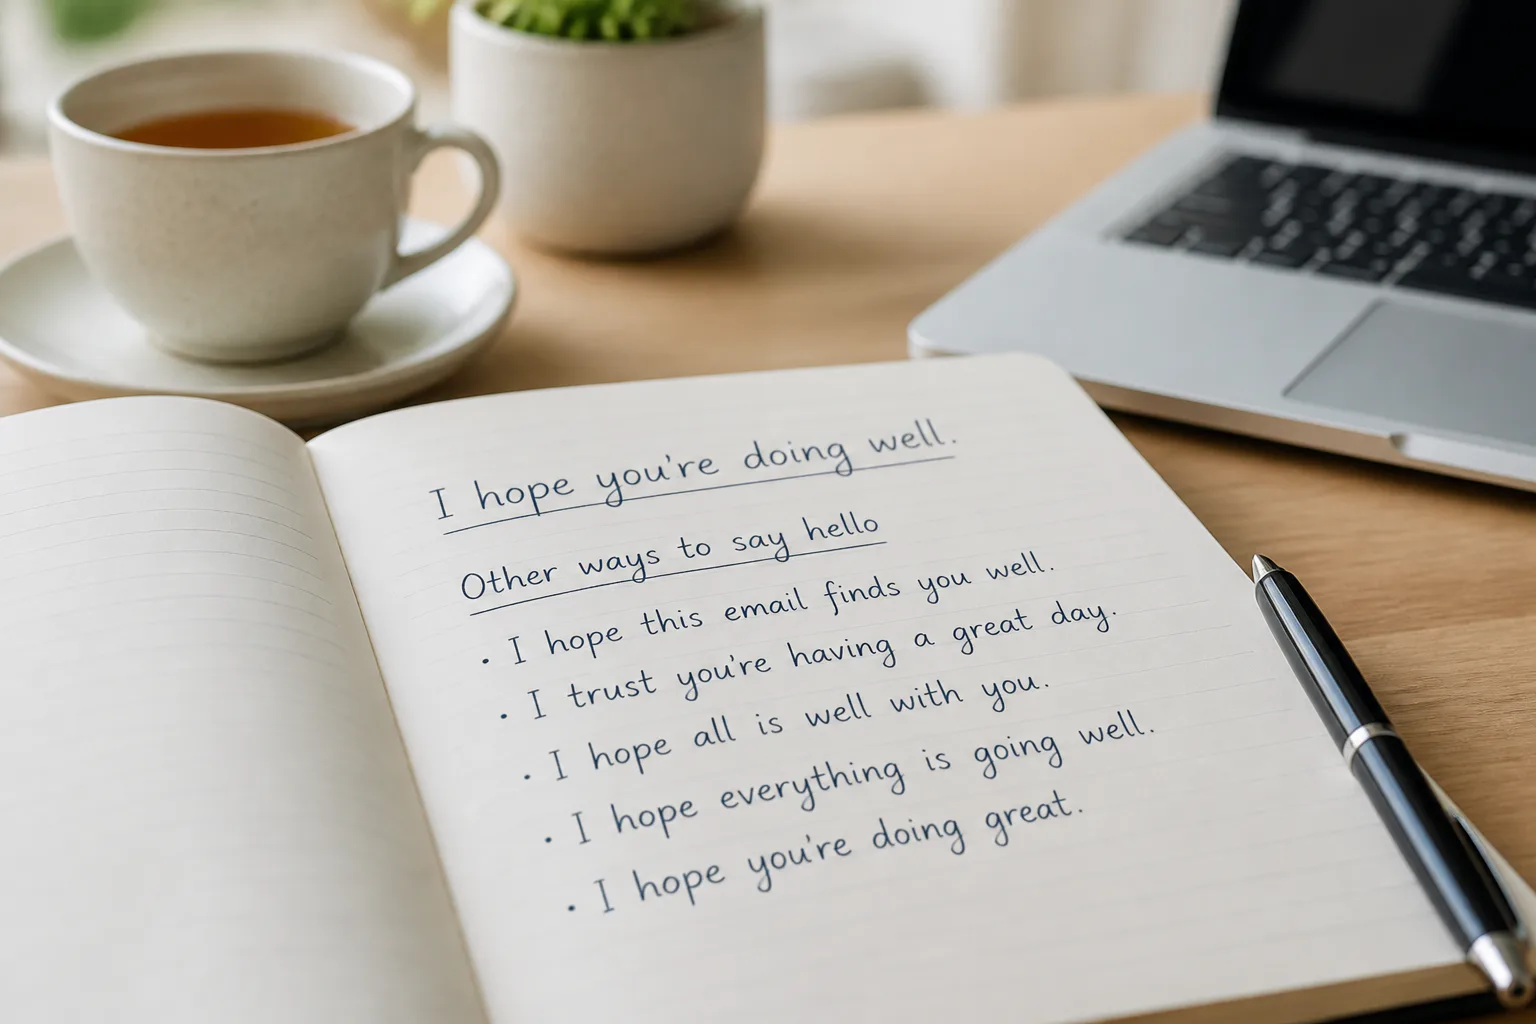 I hope you're doing well.
Other ways to say hello
• I hope this email finds you well.
• I trust you're having a great day.
• I hope all is well with you.
• I hope everything is going well.
• I hope you're doing great.